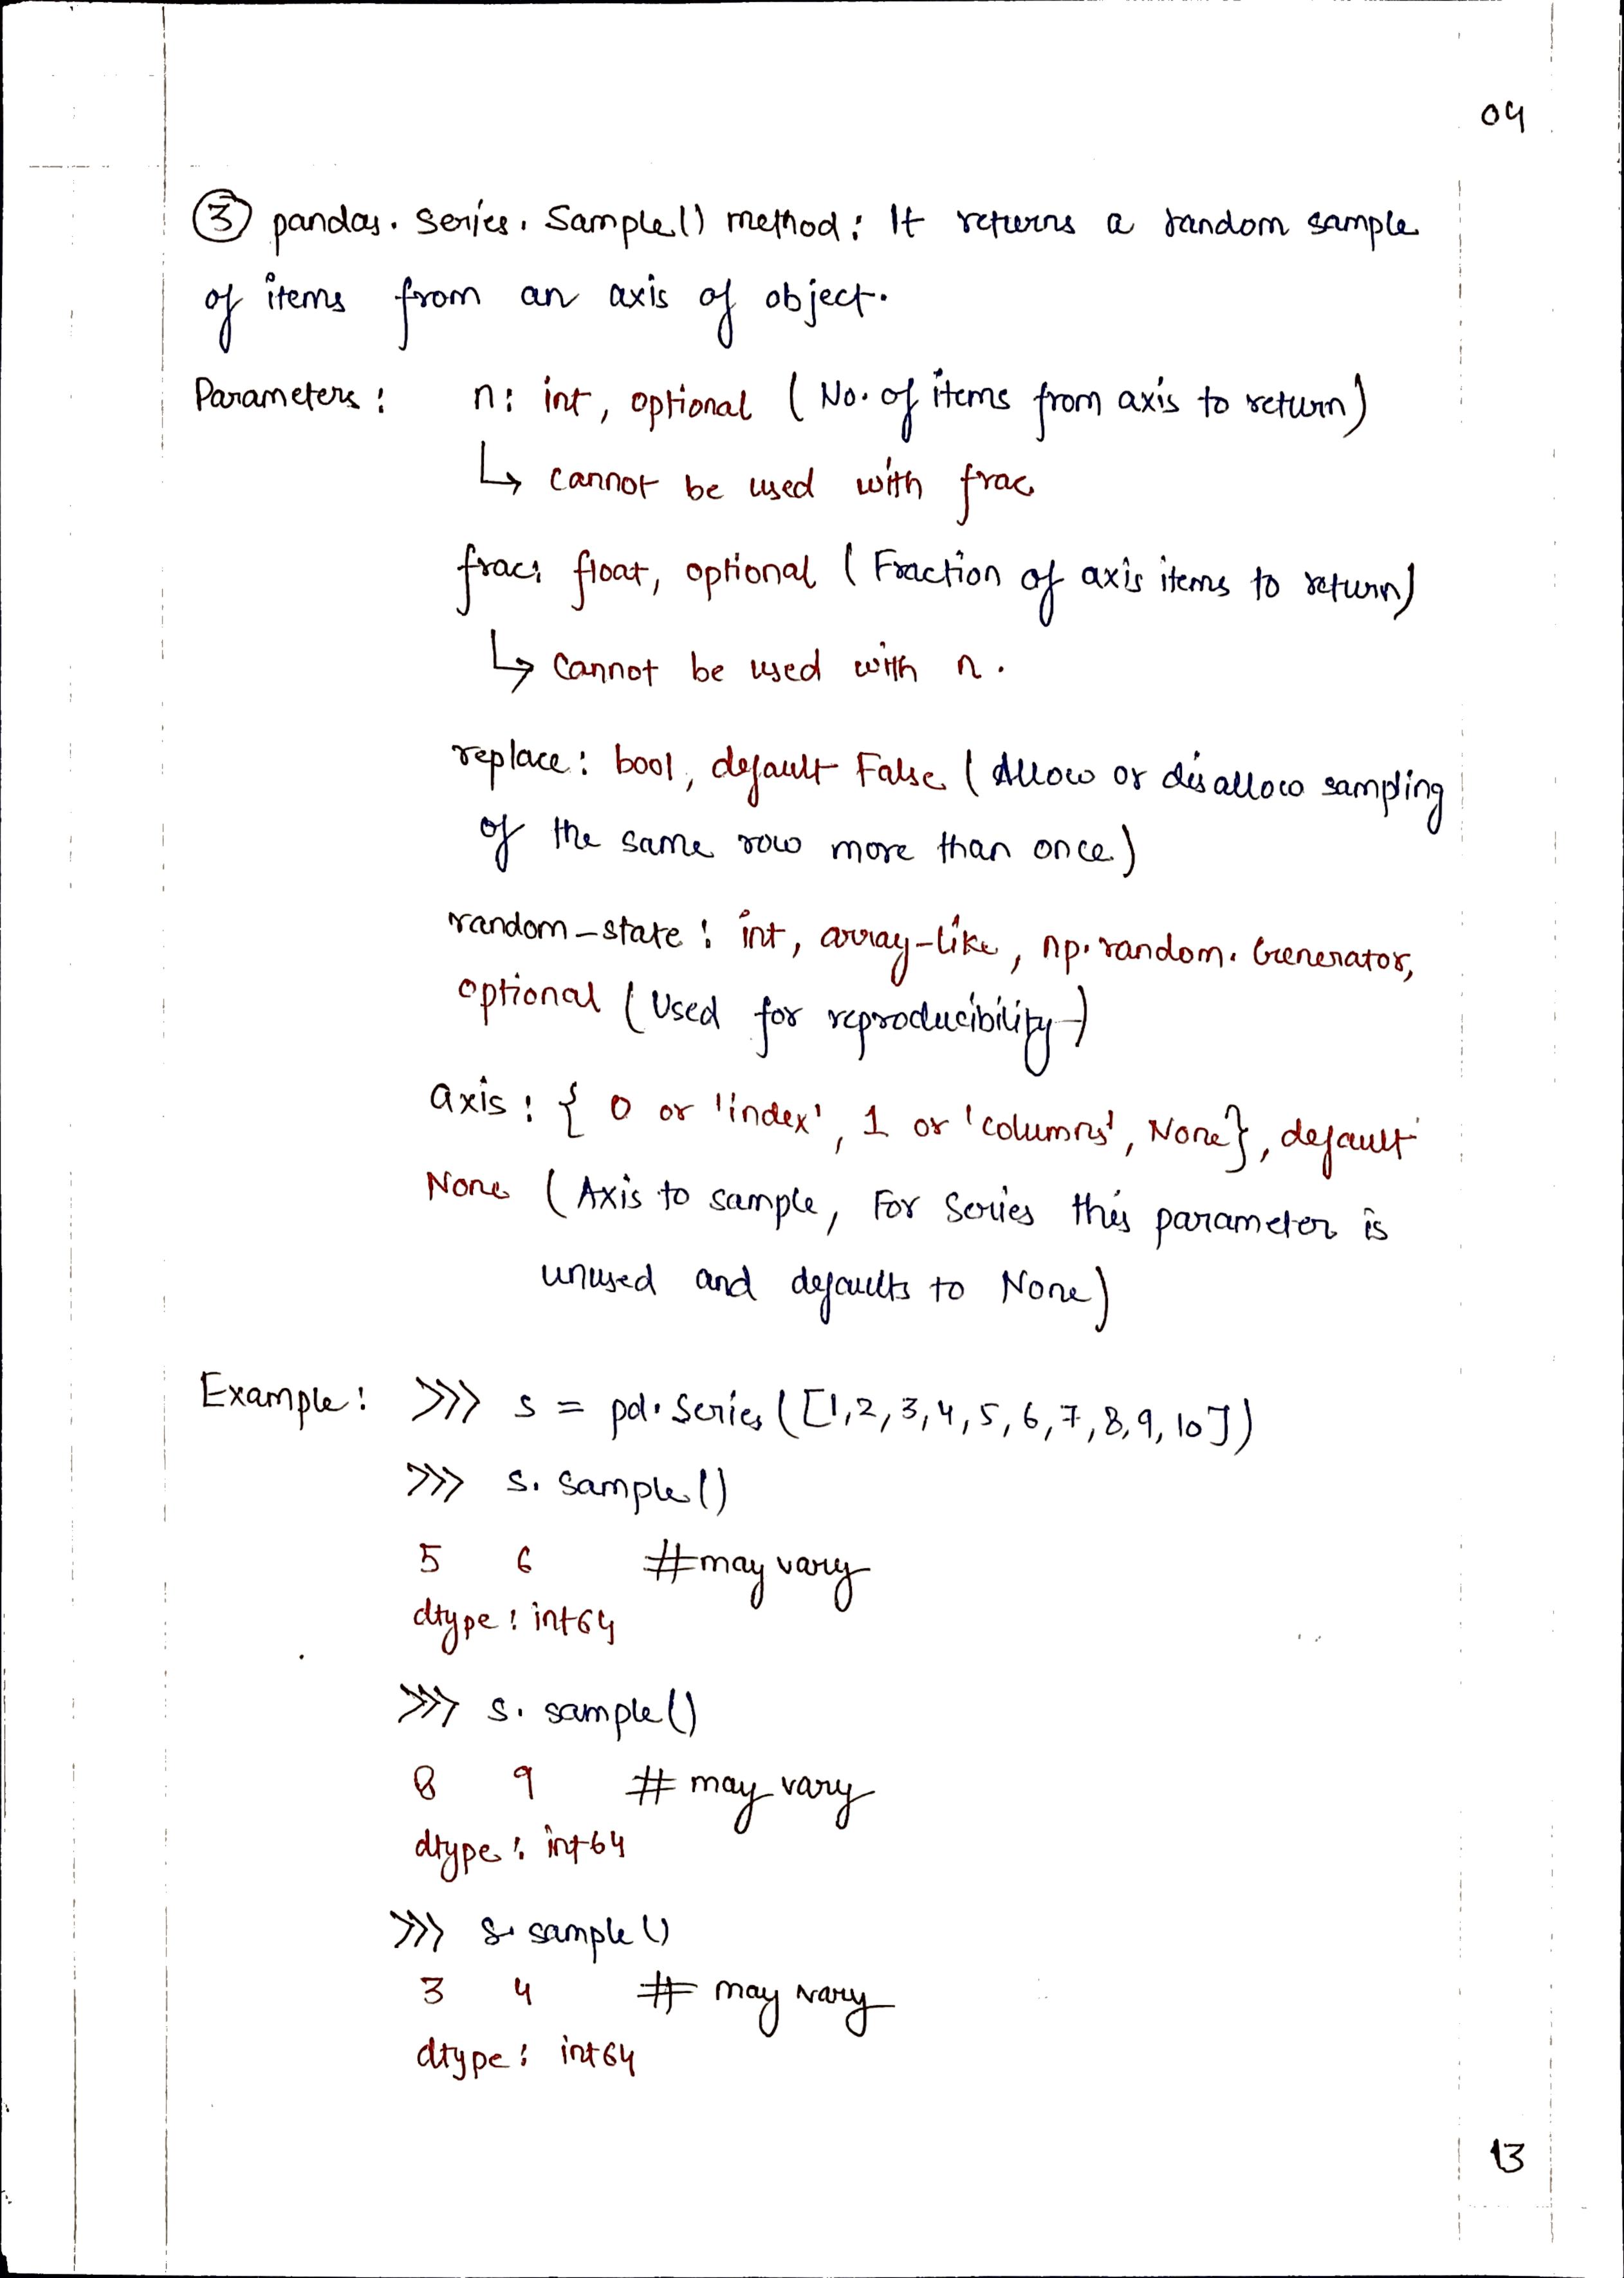 04
③ pandas. Series. Sample() method: It returns a random sample
of items from an axis of object.
Parameters: n: int, optional (No. of items from axis to return)
↳ cannot be used with frac
frac: float, optional (Fraction of axis items to return)
↳ cannot be used with n.
replace: bool, default False (Allow or disallow sampling
of the same row more than once)
random-state: int, array-like, np.random.Generator,
optional (Used for reproducibility)
axis: { 0 or 'index', 1 or 'columns', None}, default
None (Axis to sample, For Series this parameter is
unused and defaults to None)
Example: >>> s = pd.Series([1,2,3,4,5,6,7,8,9,10])
>>> s.sample()
5 6 #may vary
dtype: int64
>>> s.sample()
8 9 # may vary
dtype: int64
>>> s.sample()
3 4 # may vary
dtype: int64
13